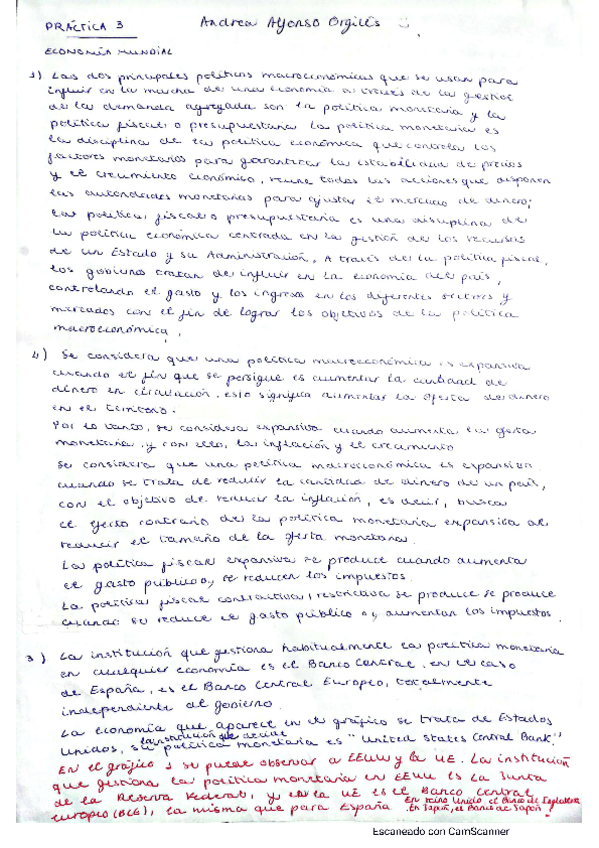 PRÁCTICA 3 Andrea Alfonso Orgilés
ECONOMÍA MUNDIAL
1) Las dos principales políticas macroeconómicas que se usan para
influir en la marcha de una economía a través de la gestión
de la demanda agregada son: la política monetaria y la
política fiscal o presupuestaria. La política monetaria es
la disciplina de la política económica que controla los
factores monetarios para garantizar la estabilidad de precios
y el crecimiento económico, reúne todas las acciones que disponen
las autoridades monetarias para ajustar el mercado de dinero;
La política, fiscal o presupuestaria es una disciplina de
la política económica centrada en la gestión de los recursos
de un Estado y su Administración. A través de la política fiscal,
los gobiernos tratan de influir en la economía del país,
controlando el gasto y los ingresos en los diferentes sectores y
mercados con el fin de lograr los objetivos de la política
macroeconómica.
2) Se considera que una política macroeconómica es expansiva
cuando el fin que se persigue es aumentar la cantidad de
dinero en circulación, esto significa aumentar la oferta de dinero
en el territorio.
Por lo tanto, se considera expansiva cuando aumenta la oferta
monetaria, y con ello, la inflación y el crecimiento
Se considera que una política macroeconómica es expansiva
cuando se trata de reducir la cantidad de dinero de un país,
con el objetivo de reducir la inflación, es decir, busca
el efecto contrario de la política monetaria expansiva al
reducir el tamaño de la oferta monetaria.
La política fiscal expansiva se produce cuando aumenta
el gasto público o/y se reducen los impuestos.
La política fiscal contractiva/restrictiva se produce se produce
cuando se reduce el gasto público o/y aumentan los impuestos.
3) La institución que gestiona habitualmente la política monetaria
en cualquier economía es el Banco Central, en el caso
de España, es el Banco Central Europeo, totalmente
independiente del gobierno.
La economía que aparece en el gráfico se trata de Estados
Unidos, la institución que decide su política monetaria es "United States Central Bank".
En el gráfico 1 se puede observar a EEUU y la UE. La institución
que gestiona la política monetaria en EEUU es la Junta
de la Reserva Federal, y en la UE es el Banco Central
europeo (BCE), la misma que para España. En Reino Unido, el Banco de Inglaterra
En Japón, el Banco de Japón.
Escaneado con CamScanner